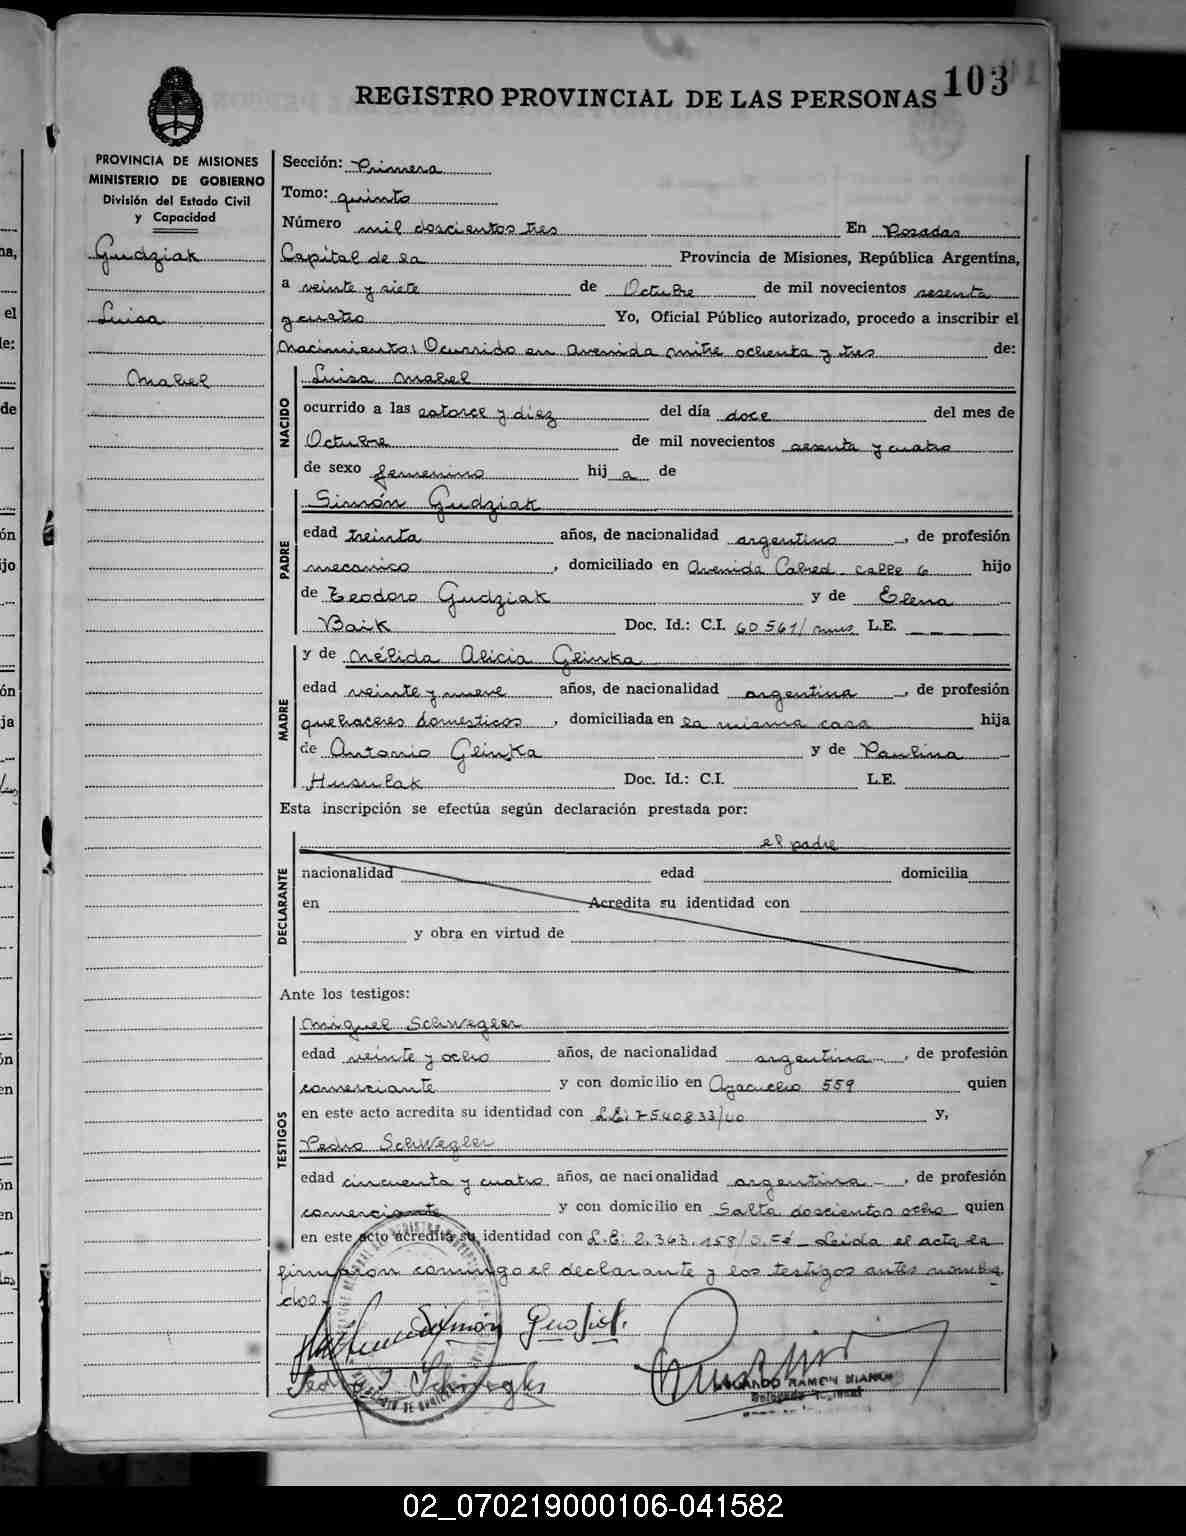 103
REGISTRO PROVINCIAL DE LAS PERSONAS
PROVINCIA DE MISIONES
MINISTERIO DE GOBIERNO
División del Estado Civil
y Capacidad
Gudziak
Luisa
Mabel
Sección: Primera
Tomo: quinto
Número mil doscientos tres En Posadas
Capital de la Provincia de Misiones, República Argentina,
a veinte y siete de Octubre de mil novecientos sesenta
y cuatro Yo, Oficial Público autorizado, procedo a inscribir el
Nacimiento: Ocurrido en Avenida Mitre ochenta y tres de:
NACIDO
Luisa Mabel
ocurrido a las catorce y diez del día doce del mes de
Octubre de mil novecientos sesenta y cuatro
de sexo femenino hij a de
PADRE
Simón Gudziak
edad treinta años, de nacionalidad argentino, de profesión
mecanico, domiciliado en Avenida Cabred calle 6 hijo
de Teodoro Gudziak y de Elena
Baik Doc. Id.: C.I. 60561/mns L.E.
MADRE
y de Nélida Alicia Glinka
edad veinte y nueve años, de nacionalidad argentina, de profesión
quehaceres domesticos, domiciliada en la misma casa hija
de Antonio Glinka y de Paulina
Husulak Doc. Id.: C.I. L.E.
Esta inscripción se efectúa según declaración prestada por:
DECLARANTE
el padre
nacionalidad edad domicilia
en Acredita su identidad con
y obra en virtud de
Ante los testigos:
TESTIGOS
Miguel Schwegler
edad veinte y ocho años, de nacionalidad argentina, de profesión
comerciante y con domicilio en Ayacucho 559 quien
en este acto acredita su identidad con L.E: 7540833/ y,
Pedro Schwegler
edad cincuenta y cuatro años, de nacionalidad argentina, de profesión
comerciante y con domicilio en Salta doscientos ocho quien
en este acto acredita su identidad con L.E: 2.363.158/D.Fé - Leida el acta la
firmaron conmigo el declarante y los testigos antes nombra
dos.-
Simón
RAMON
02_070219000106-041582